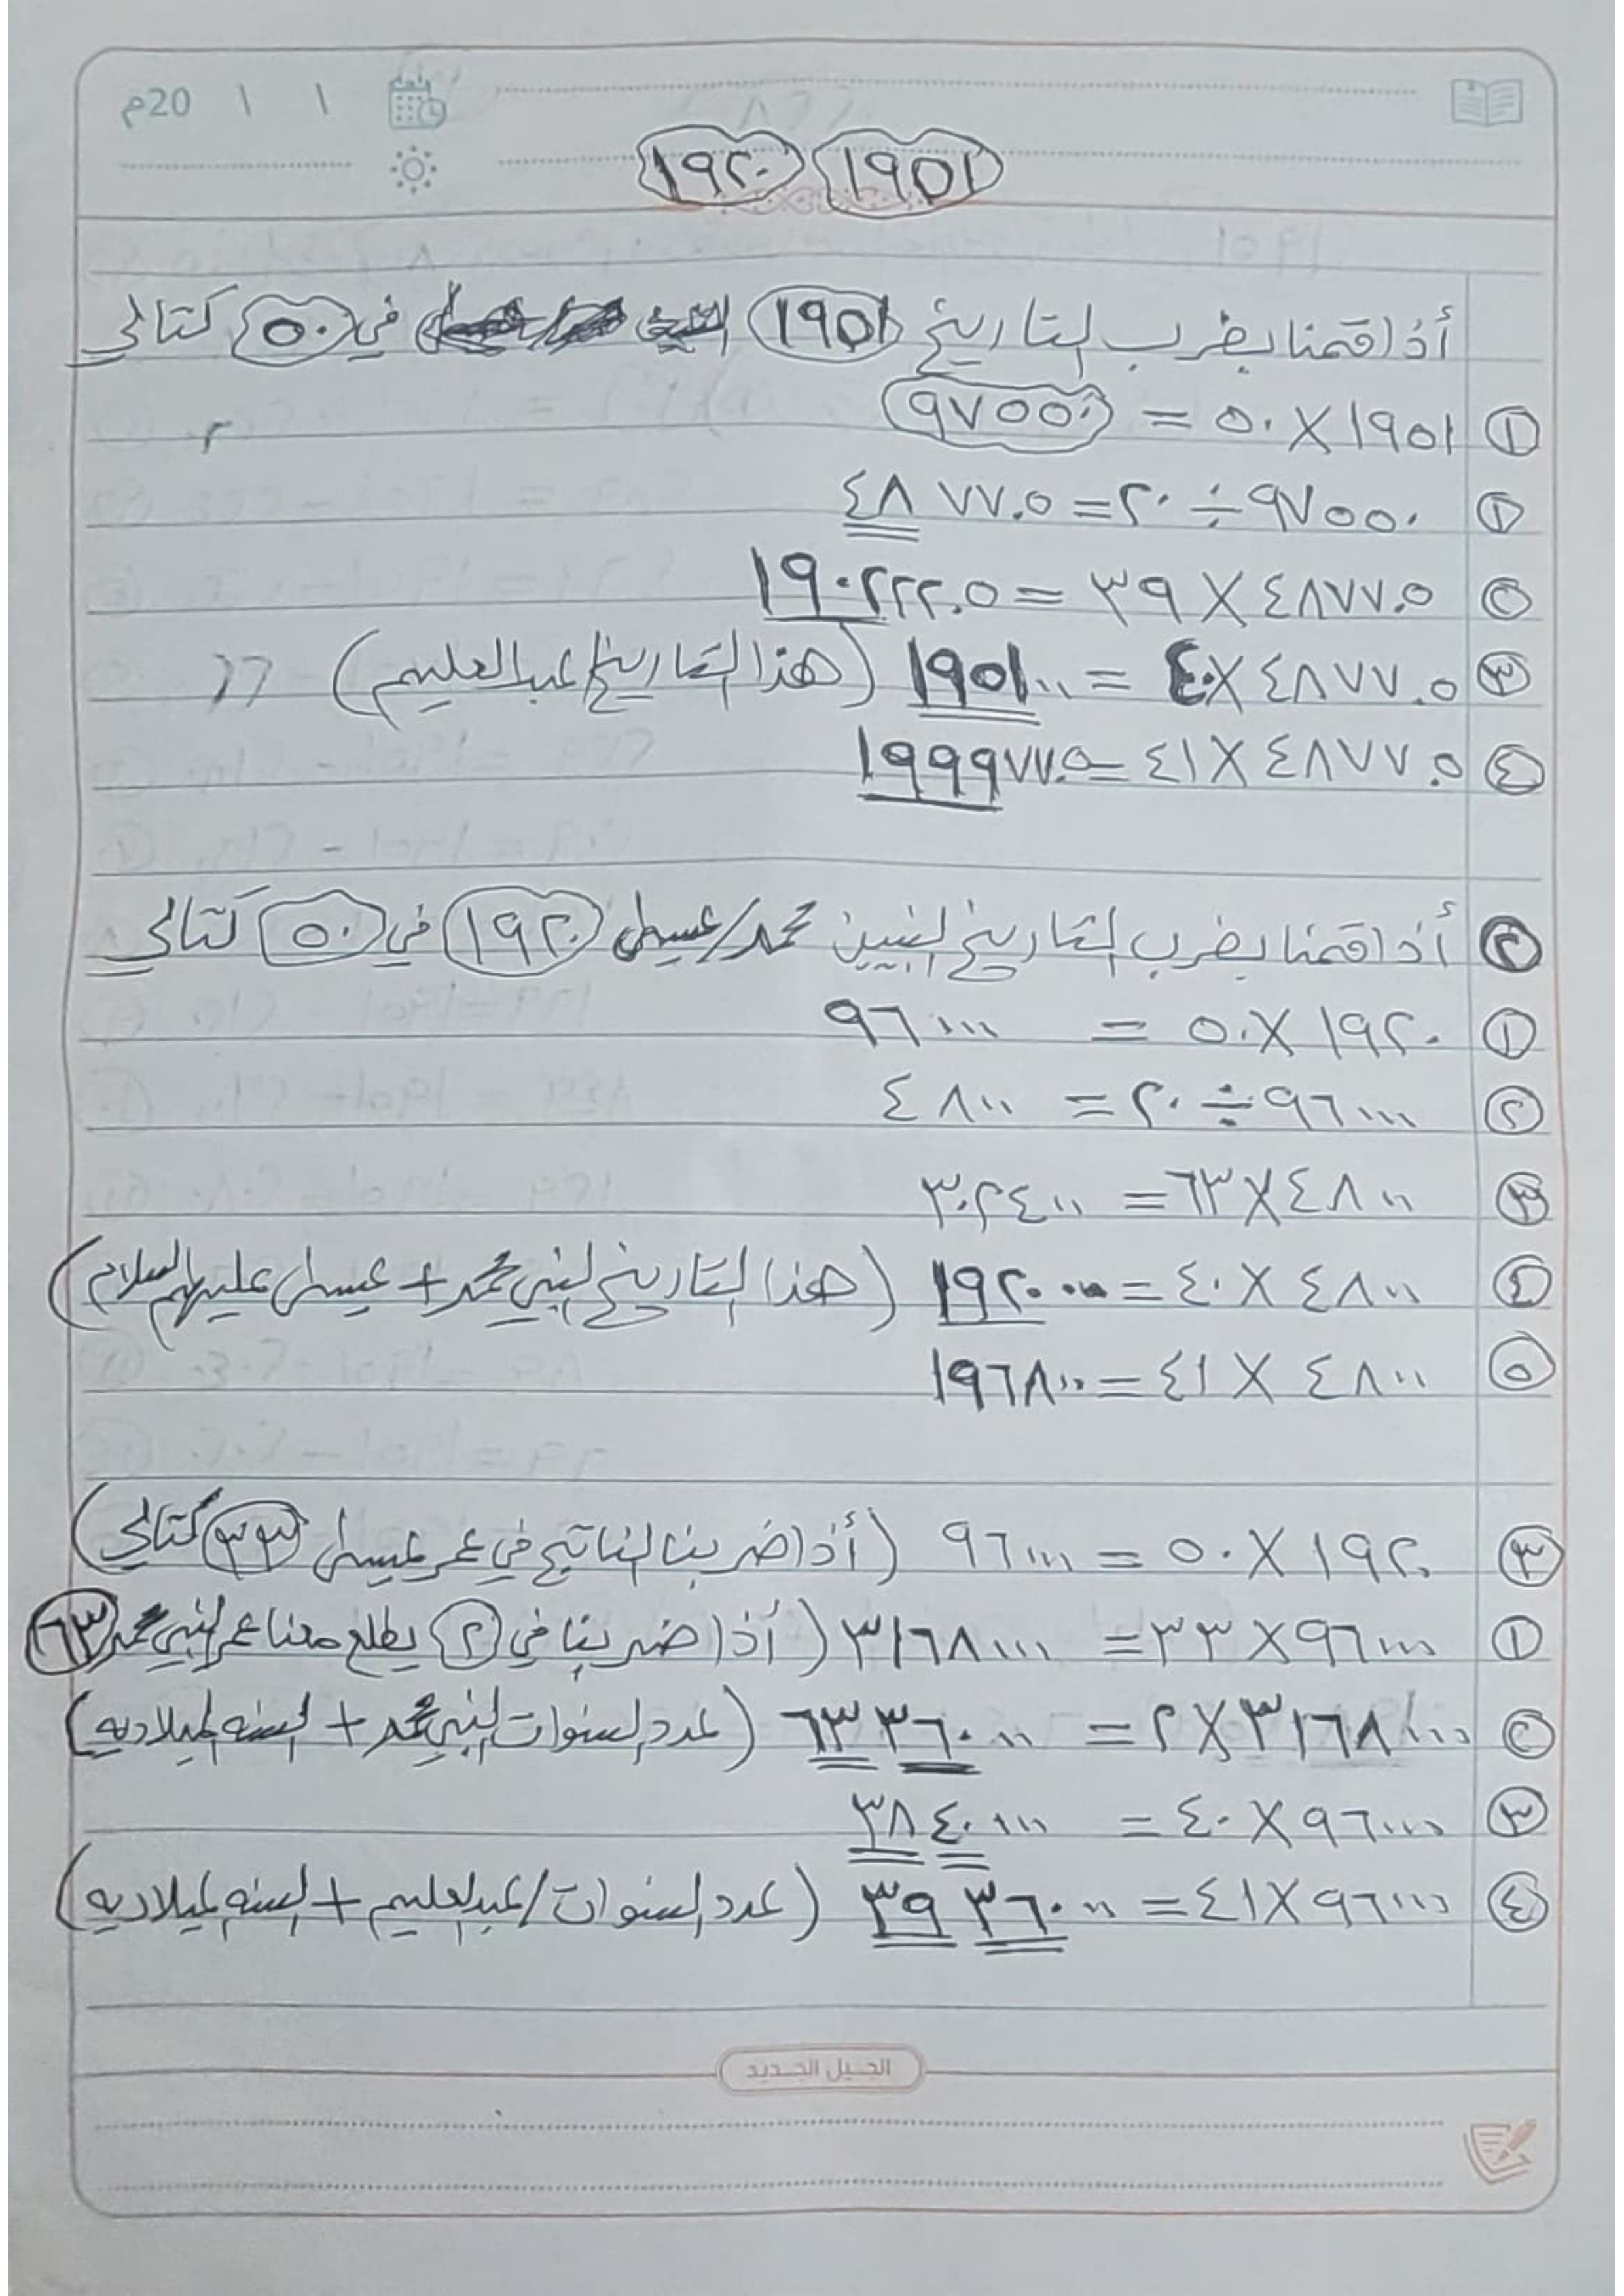 20م
١٩٥١ ١٩٢٠
أذا قمنا بضرب التاريخ ١٩٥١ في ٥٠ كتالي
١ ١٩٥١ × ٥٠ = ٩٧٥٥٠
٢ ٩٧٥٥٠ ÷ ٢٠ = ٤٨٧٧.٥
٢ ٤٨٧٧.٥ × ٣٩ = ١٩٠٢٢٢.٥
٣ ٤٨٧٧.٥ × ٤٠ = ١٩٥١٠٠ (هذا التاريخ/عبدالعليم)
٤ ٤٨٧٧.٥ × ٤١ = ١٩٩٩٧٧.٥
٢ أذا قمنا بضرب التاريخ النبيين محمد/عيسى ١٩٢٠ في ٥٠ كتالي
١ ١٩٢٠ × ٥٠ = ٩٦٠٠٠
٢ ٩٦٠٠٠ ÷ ٢٠ = ٤٨٠٠
٣ ٤٨٠٠ × ٦٣ = ٣٠٢٤٠٠
٤ ٤٨٠٠ × ٤٠ = ١٩٢٠٠٠ (هذا التاريخ لنبي محمد + عيسى عليهم السلام)
٥ ٤٨٠٠ × ٤١ = ١٩٦٨٠٠
٣ ١٩٢٠ × ٥٠ = ٩٦٠٠٠ (أذا ضربنا الناتج في عمر عيسى ٣٣ كتالي)
١ ٩٦٠٠٠ × ٣٣ = ٣١٦٨٠٠٠ (أذا ضربنا في ٢ يطلع معنا عمر النبي محمد ٦٣
٢ ٣١٦٨٠٠٠ × ٢ = ٦٣٣٦٠٠٠ (عدد السنوات النبي محمد + السنه الميلاديه)
٣ ٩٦٠٠٠ × ٤٠ = ٣٨٤٠٠٠٠
٤ ٩٦٠٠٠ × ٤١ = ٣٩٣٦٠٠٠ (عدد السنوات/عبدالعليم + السنه الميلاديه)
الجيل الجديد